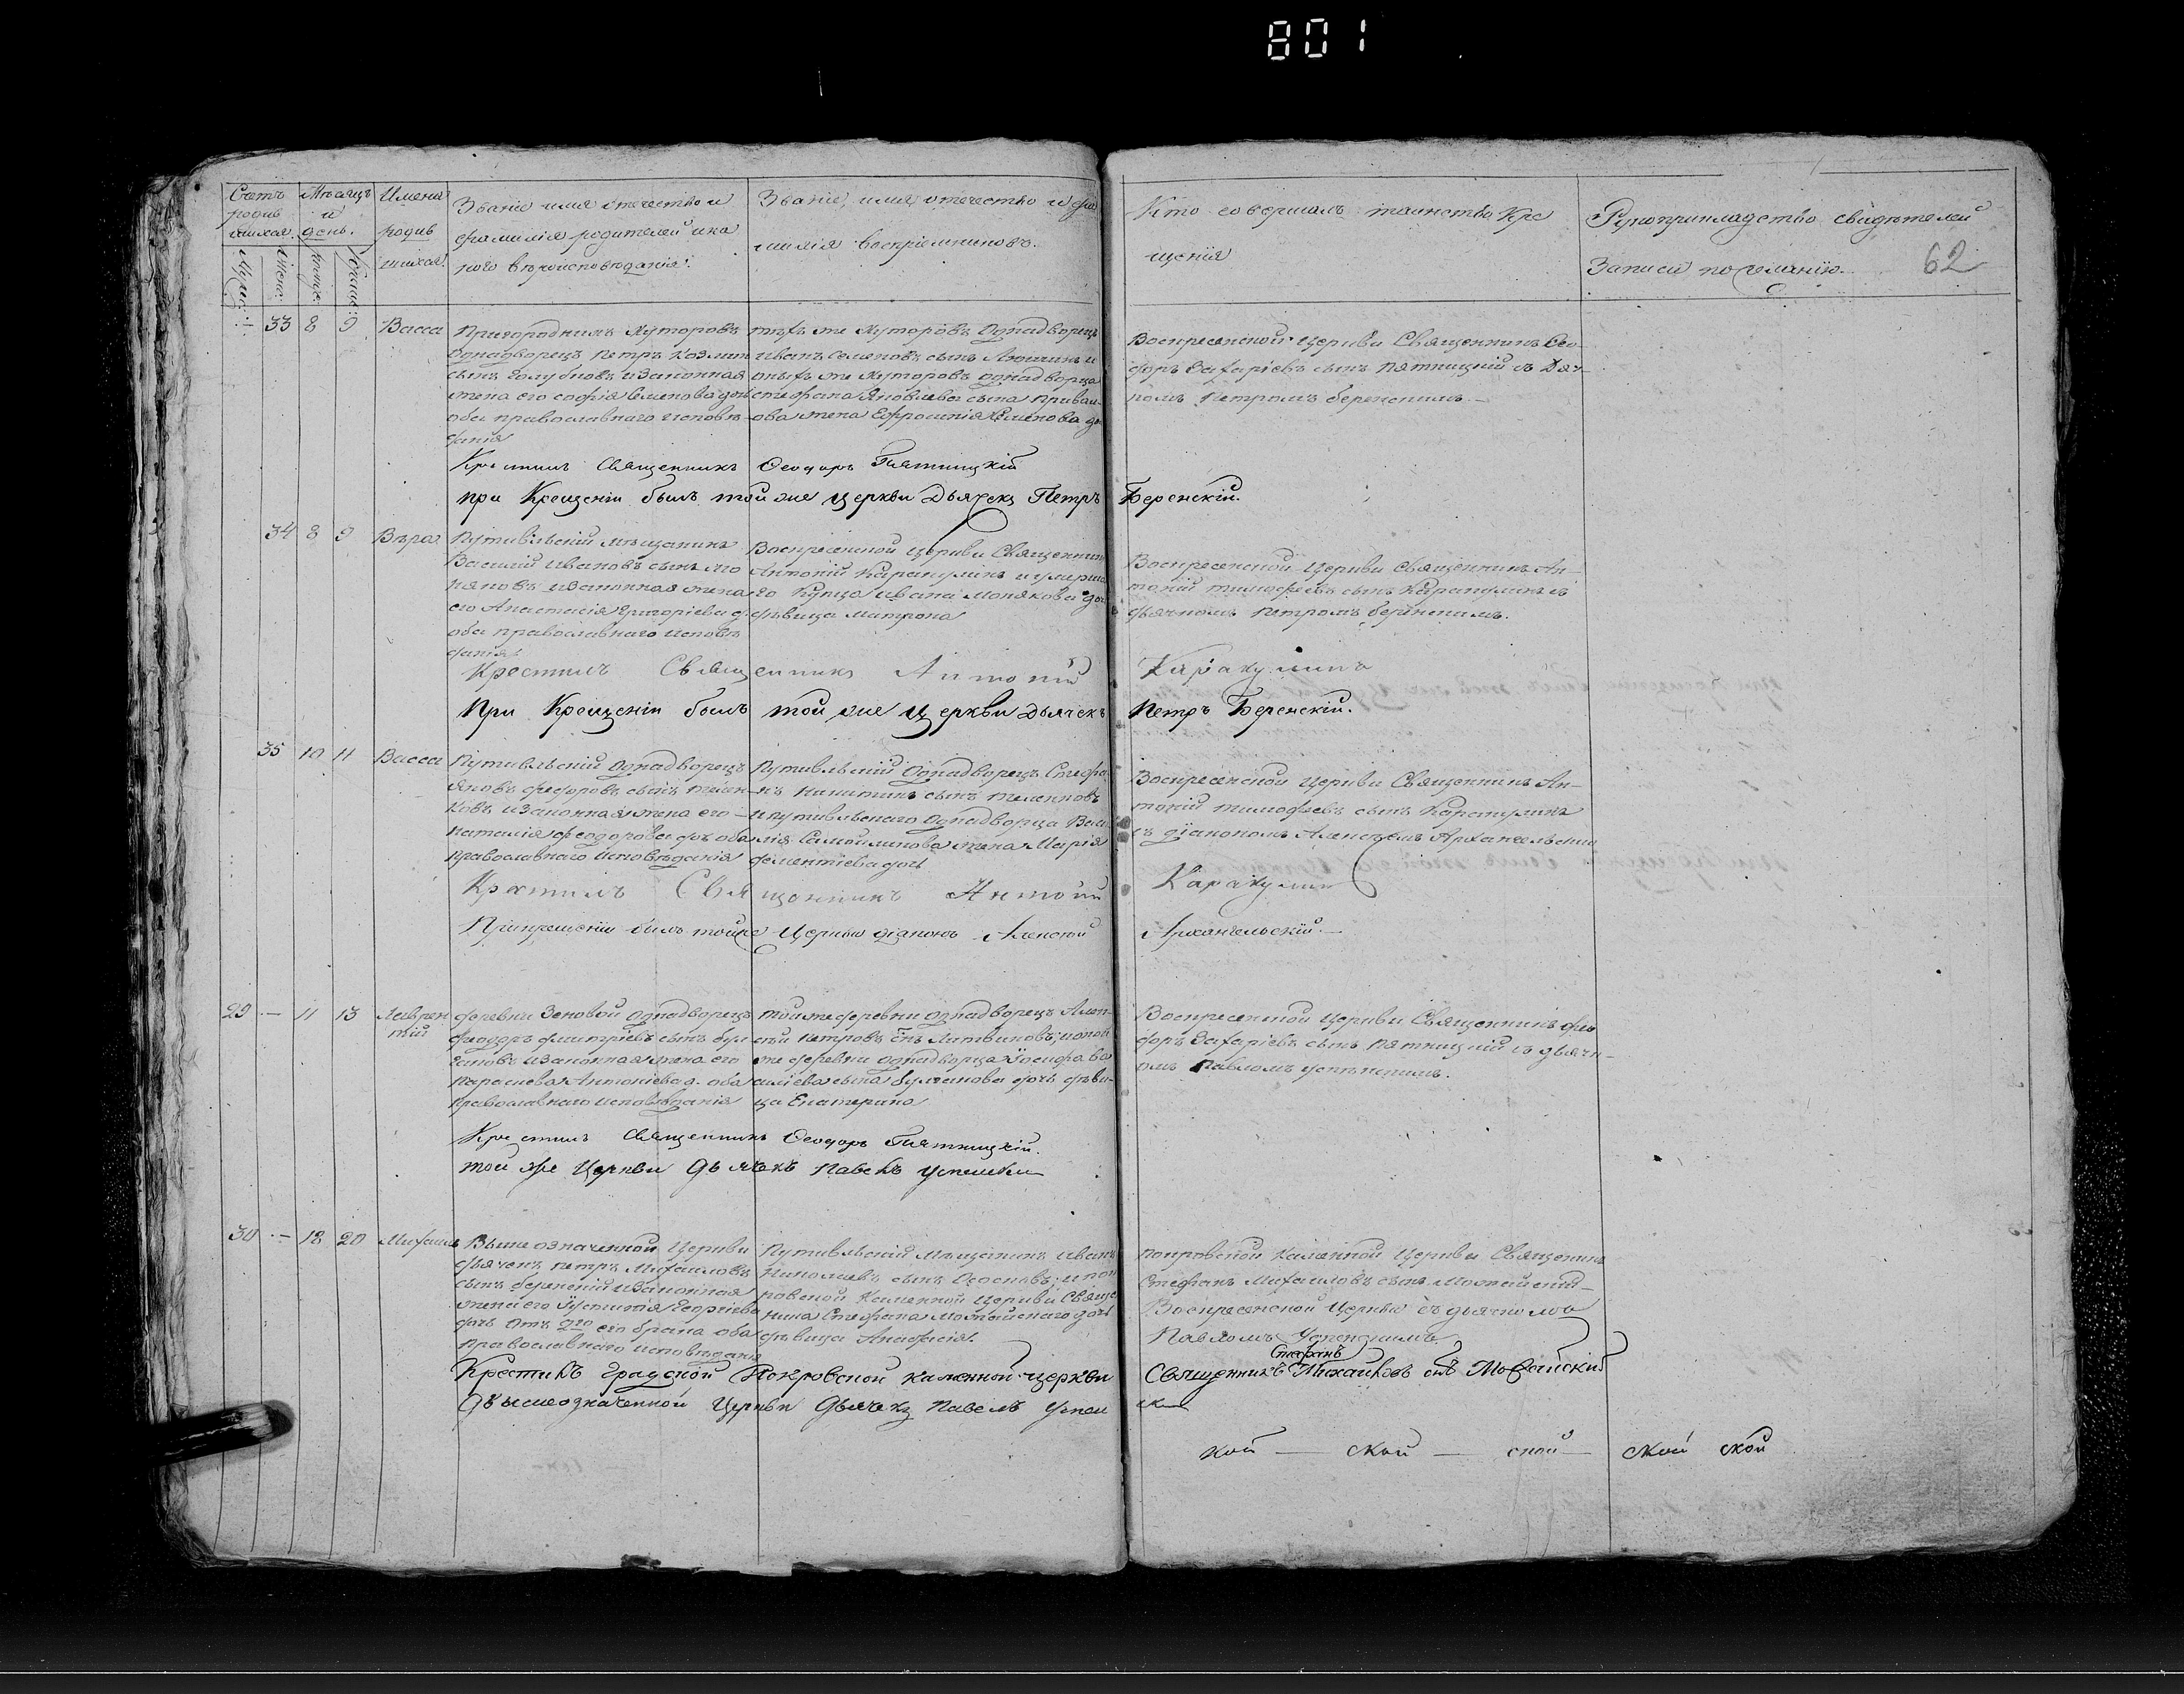 801
Счетъ родив шихся.
Мѣсяцъ и день.
Имена родив шихся.
Званіе имя отечество и
фамилія родителей и ка
кого вѣроисповѣданія.
Званіе, имя отечество и фа
милія воспріемниковъ.
Кто совершалъ таинство Кре
щенія
Рукоприкладство свидѣтелей
Записи по желанію.
62
33 8 9 Васса
Пригороднихъ Хуторовъ
Однодворецъ Петръ Козмин
сынъ Голубковъ и законная
жена его Софія Семенова дочь
оба православнаго исповѣ
данія
тѣхъ же Хуторовъ Однодворецъ
Иванъ Семеновъ сынъ и
оныхъ же Хуторовъ однодворца
Стефана Яковлева сына
жена Ефросинія Семенова до
Воскресенской Церкви Священникъ Ѳео
доръ Захаріевъ сынъ Пятницкій съ Дяч
комъ Петромъ Беренскимъ. —
Крестилъ Священникъ Ѳеодоръ Пятницкій
при Крещеніи былъ той же церкви Дьячекъ Петръ Беренскій.
34 8 9 Вѣра
Путивльскій мѣщанинъ
Василій Ивановъ сынъ
и законная жена
его Анастасія Григоріева д.
оба православнаго исповѣ
данія.
Воскресенской Церкви Священник
Антоній Каракулинъ и умерша
го Купца Ивана дочь
дѣвица Матрона
Воскресенской Церкви Священникъ Ан
тоній Тимофеевъ сынъ Каракулинъ съ
дьячкомъ Петромъ Беренскимъ.
Крестилъ Священникъ Антоній Каракулинъ
При Крещеніи былъ той же Церкви Дьячекъ Петръ Беренскій.
35 10 11 Васса
Путивльскій Однодворецъ
Яковъ Федоровъ сынъ Телен
ковъ и законная жена его
Наталія Феодорова дч. оба
православнаго исповѣданія
Путивльскій Однодворецъ Стефа
нъ Никитинъ сынъ Теленковъ
и путивльскаго Однодворца Васи
лія Самойликова жена Марія
дочь
Воскресенской Церкви Священникъ Ан
тоній Тимофеевъ сынъ Каракулинъ
съ діакономъ Алексѣемъ Архангельским
Крестилъ Священникъ Антоній Каракулин
При крещеніи былъ той же Церкви діаконъ Алексей Архангельскій. —
29 — 11 13 Лаврен
тій
деревни Зеновой однодворецъ
Феодоръ Дмитріевъ сынъ Бул
гаковъ и законная жена его
Параскева Антоніева д. оба
православнаго исповѣданія
той же деревни однодворецъ Алек
сѣй Петровъ снъ Литвиновъ; и той
же деревни однодворца Іосифа Ва
силіева сына Булгакова дочь дѣви
ца Екатерина
Воскресенской Церкви Священникъ Фео
доръ Захаріевъ сынъ Пятницкій съ дьячк
омъ Павломъ Успенскимъ.
Крестилъ Священникъ Ѳеодоръ Пятницкій.
той же Церкви Дьячекъ Павелъ Успенски
30 — 18 20 Михаилъ
Вышеозначенной Церкви
дьячекъ Петръ Михаиловъ
сынъ Беренскій и законная
жена его Іустинія Георгіева
дочь отъ 2го его брака оба
православнаго исповѣданія
Путивльскій Мѣщанинъ Иванъ
Николаевъ сынъ; и пок
ровской Каменной Церкви Священ
ника СтефанаМожайскаго дочь
дѣвица Анафасія.
Покровской Каменной Церкви Священникъ
Стефанъ Михаиловъ сынъ Можайскій
Воскресенской Церкви съ дьячкомъ
Павломъ Успенскимъ.
Крестилъ градской Покровской каменной церкви Священникъ Стефанъ Михаиловъ снъ Можайскій
Вышеозначенной Церкви Дьячекъ Павелъ Успен
ски
кой — ской — ской — ской ской